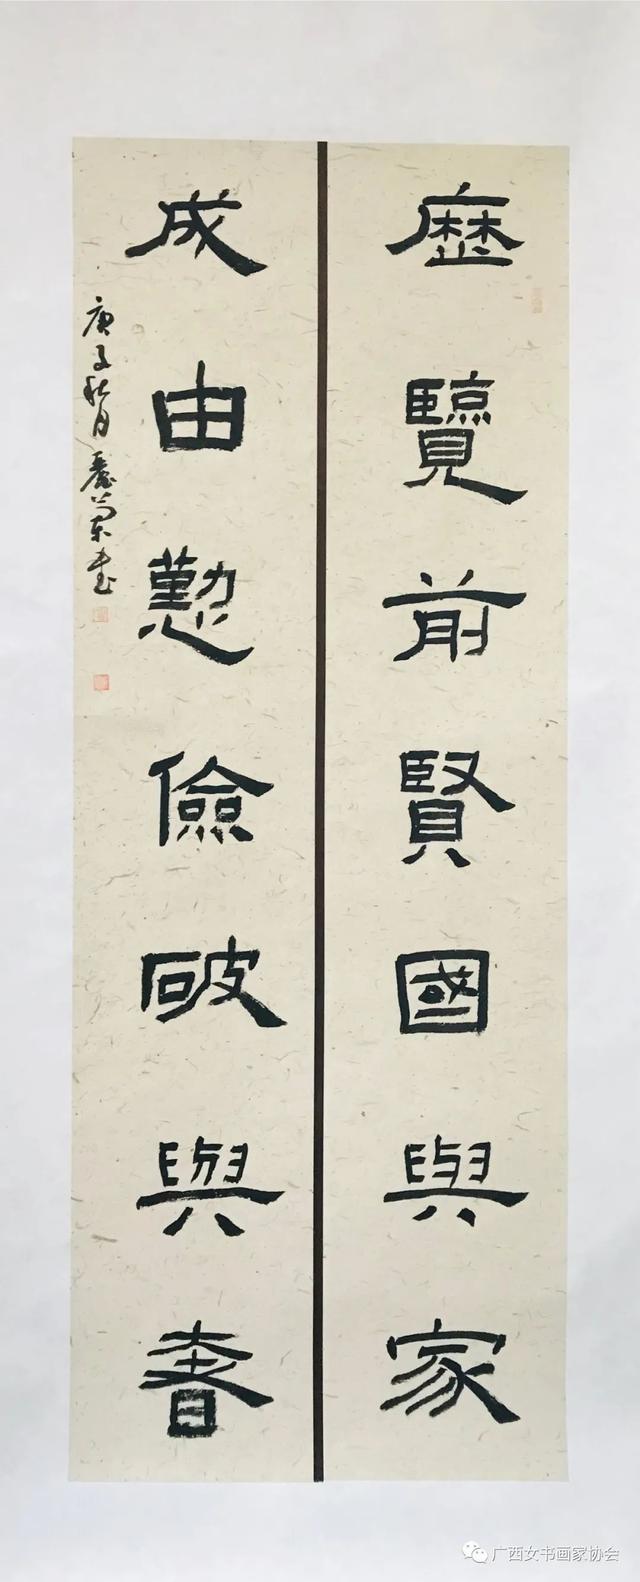 歷覽前賢國與家
成由懃儉破與奢
庚子秋月麗蘭書
广西女书画家协会